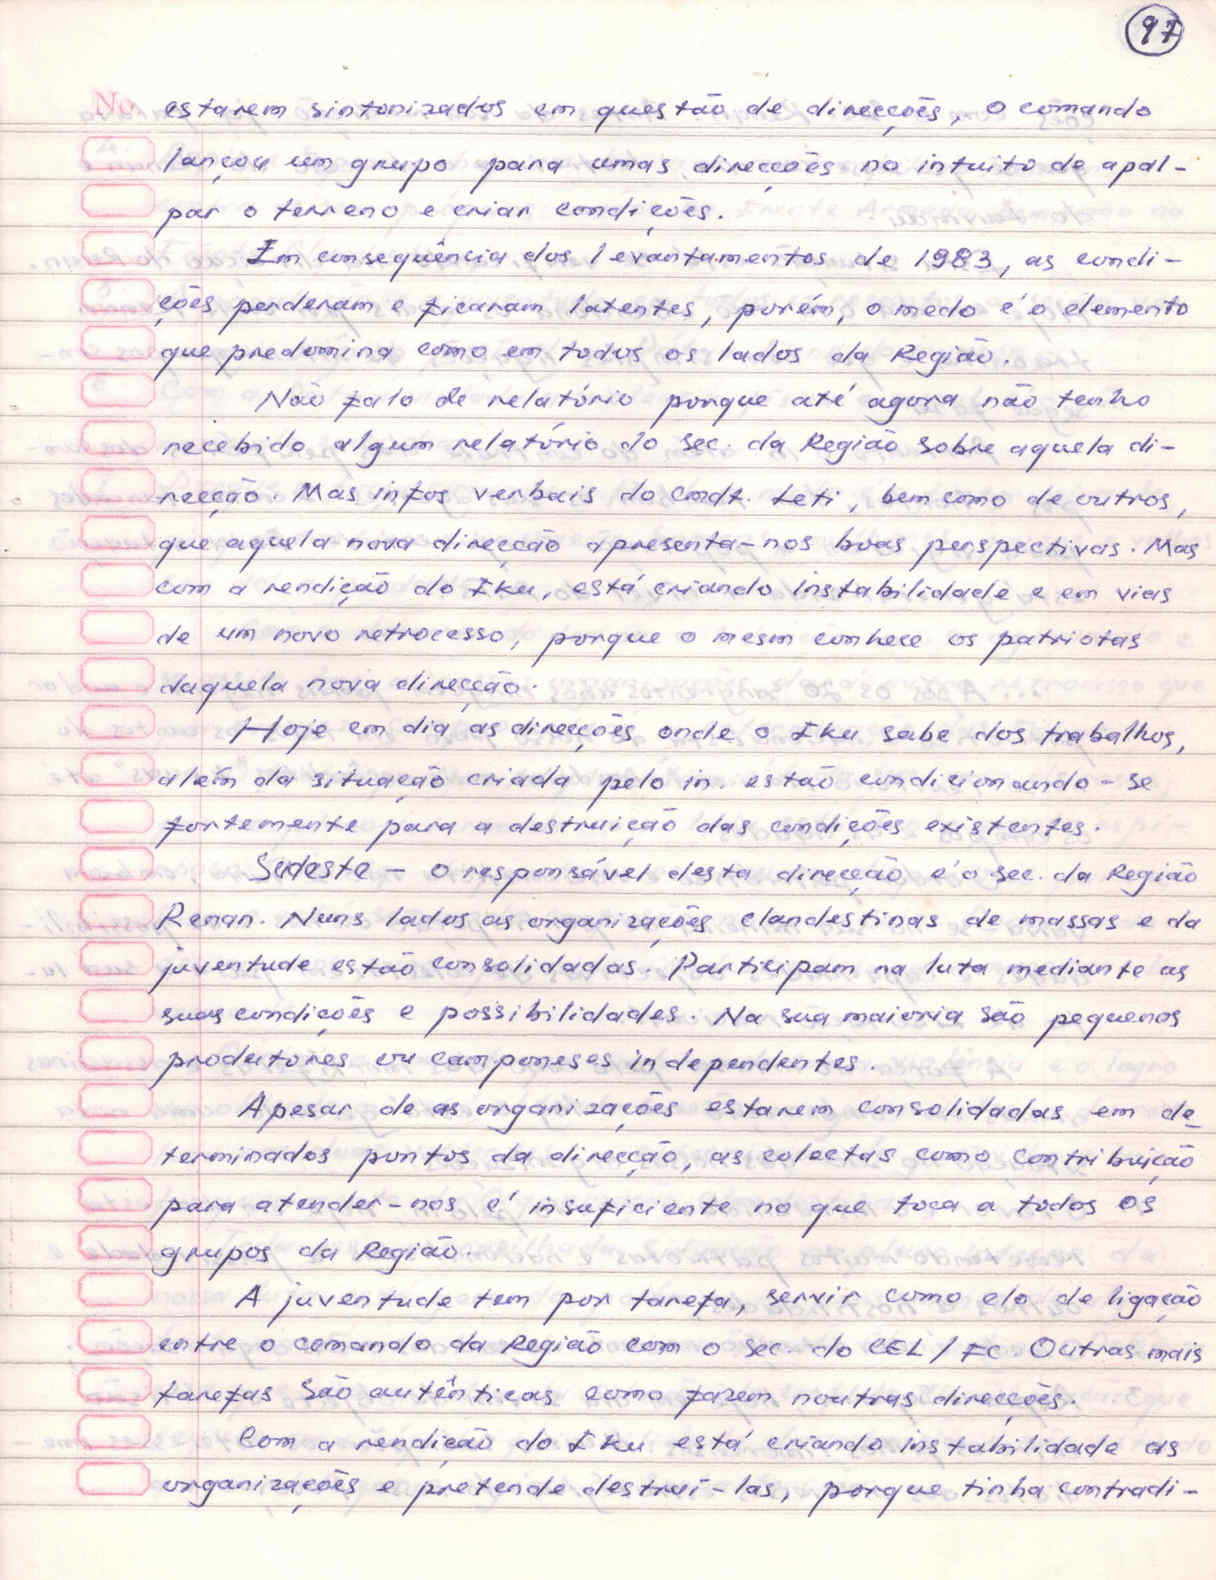 97
No
estarem sintonizados em questão de direcções, o comando
lançou um grupo para umas direcções no intuito de apal-
par o terreno e criar condições.
Em consequência dos levantamentos de 1983, as condi-
ções perderam e ficaram latentes, porém, o medo é o elemento
que predomina como em todos os lados da Região.
Não falo de relatório porque até agora não tenho
recebido algum relatório do sec. da Região sobre aquela di-
recção. Mas infos verbais do cmdt. Leti, bem como de outros,
que aquela nova direcção apresenta-nos boas perspectivas. Mas
com a rendição do Iku, está criando instabilidade e em vias
de um novo retrocesso, porque o mesm conhece os patriotas
daquela nova direcção.
Hoje em dia as direcções onde o Iku sabe dos trabalhos,
além da situação criada pelo in. estão condicionando-se
fortemente para a destruição das condições existentes.
Sudeste - O responsável desta direcção é o sec. da Região
Renan. Nuns lados as organizações clandestinas de massas e da
juventude estão consolidadas. Participam na luta mediante as
suas condições e possibilidades. Na sua maioria são pequenos
produtores ou camponeses independentes.
Apesar de as organizações estarem consolidadas em de
terminados pontos da direcção, as colectas como contribuição
para atender-nos é insuficiente no que toca a todos os
grupos da Região.
A juventude tem por tarefa, servir como elo de ligação
entre o comando da Região com o sec. do CEL/FC. Outras mais
tarefas são autênticas como fazem noutras direcções.
Com a rendição do Iku está criando instabilidade as
organizações e pretende destruí-las, porque tinha contradi-